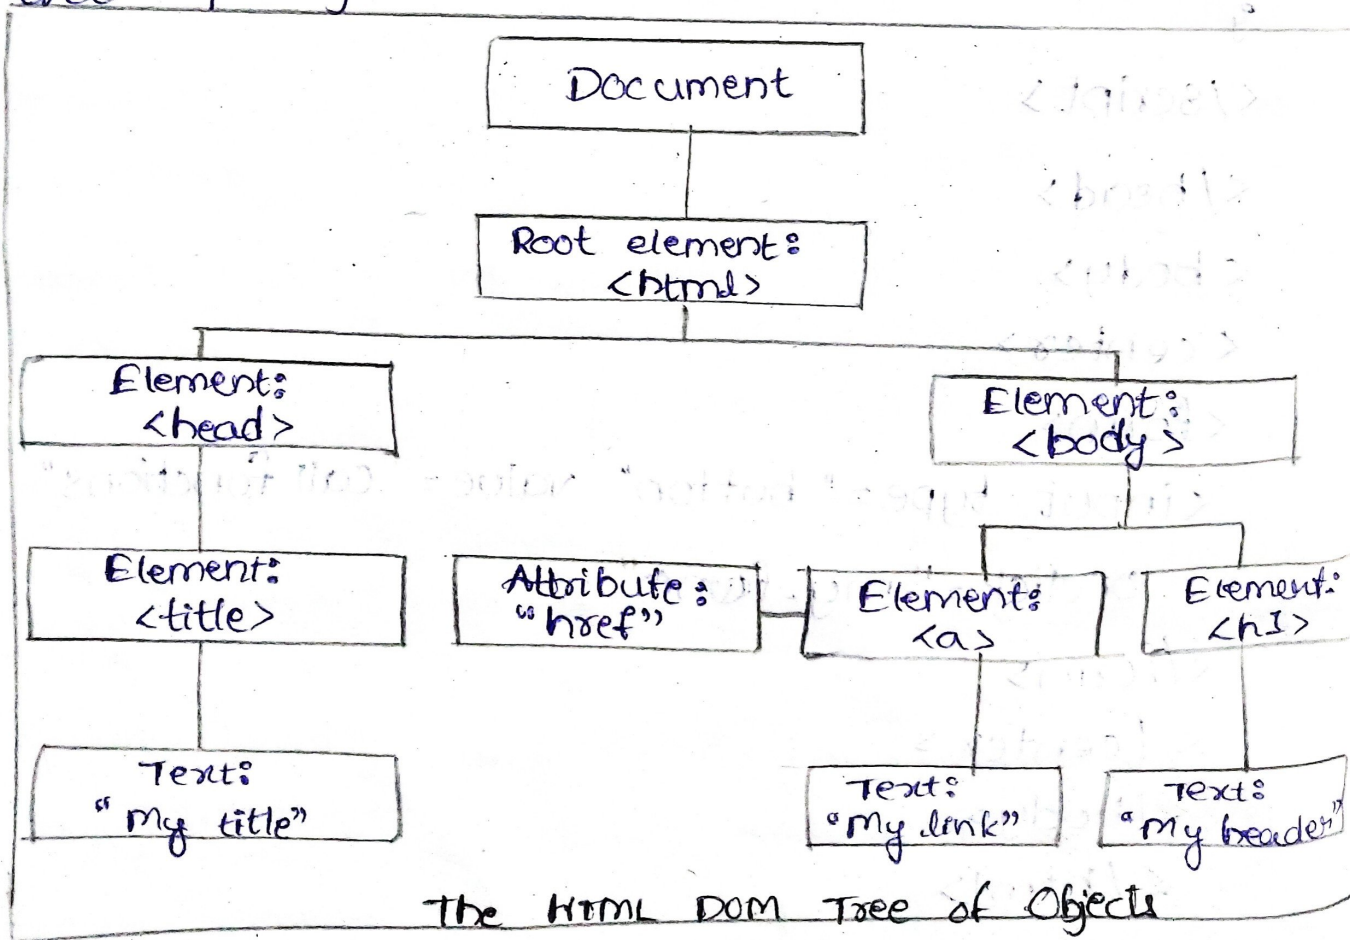 Document
Root element:
<html>
Element:
<head>
Element:
<body>
Element:
<title>
Attribute:
"href"
Element:
<a>
Element:
<h1>
Text:
"My title"
Text:
"My link"
Text:
"My header"
The HTML DOM Tree of Objects